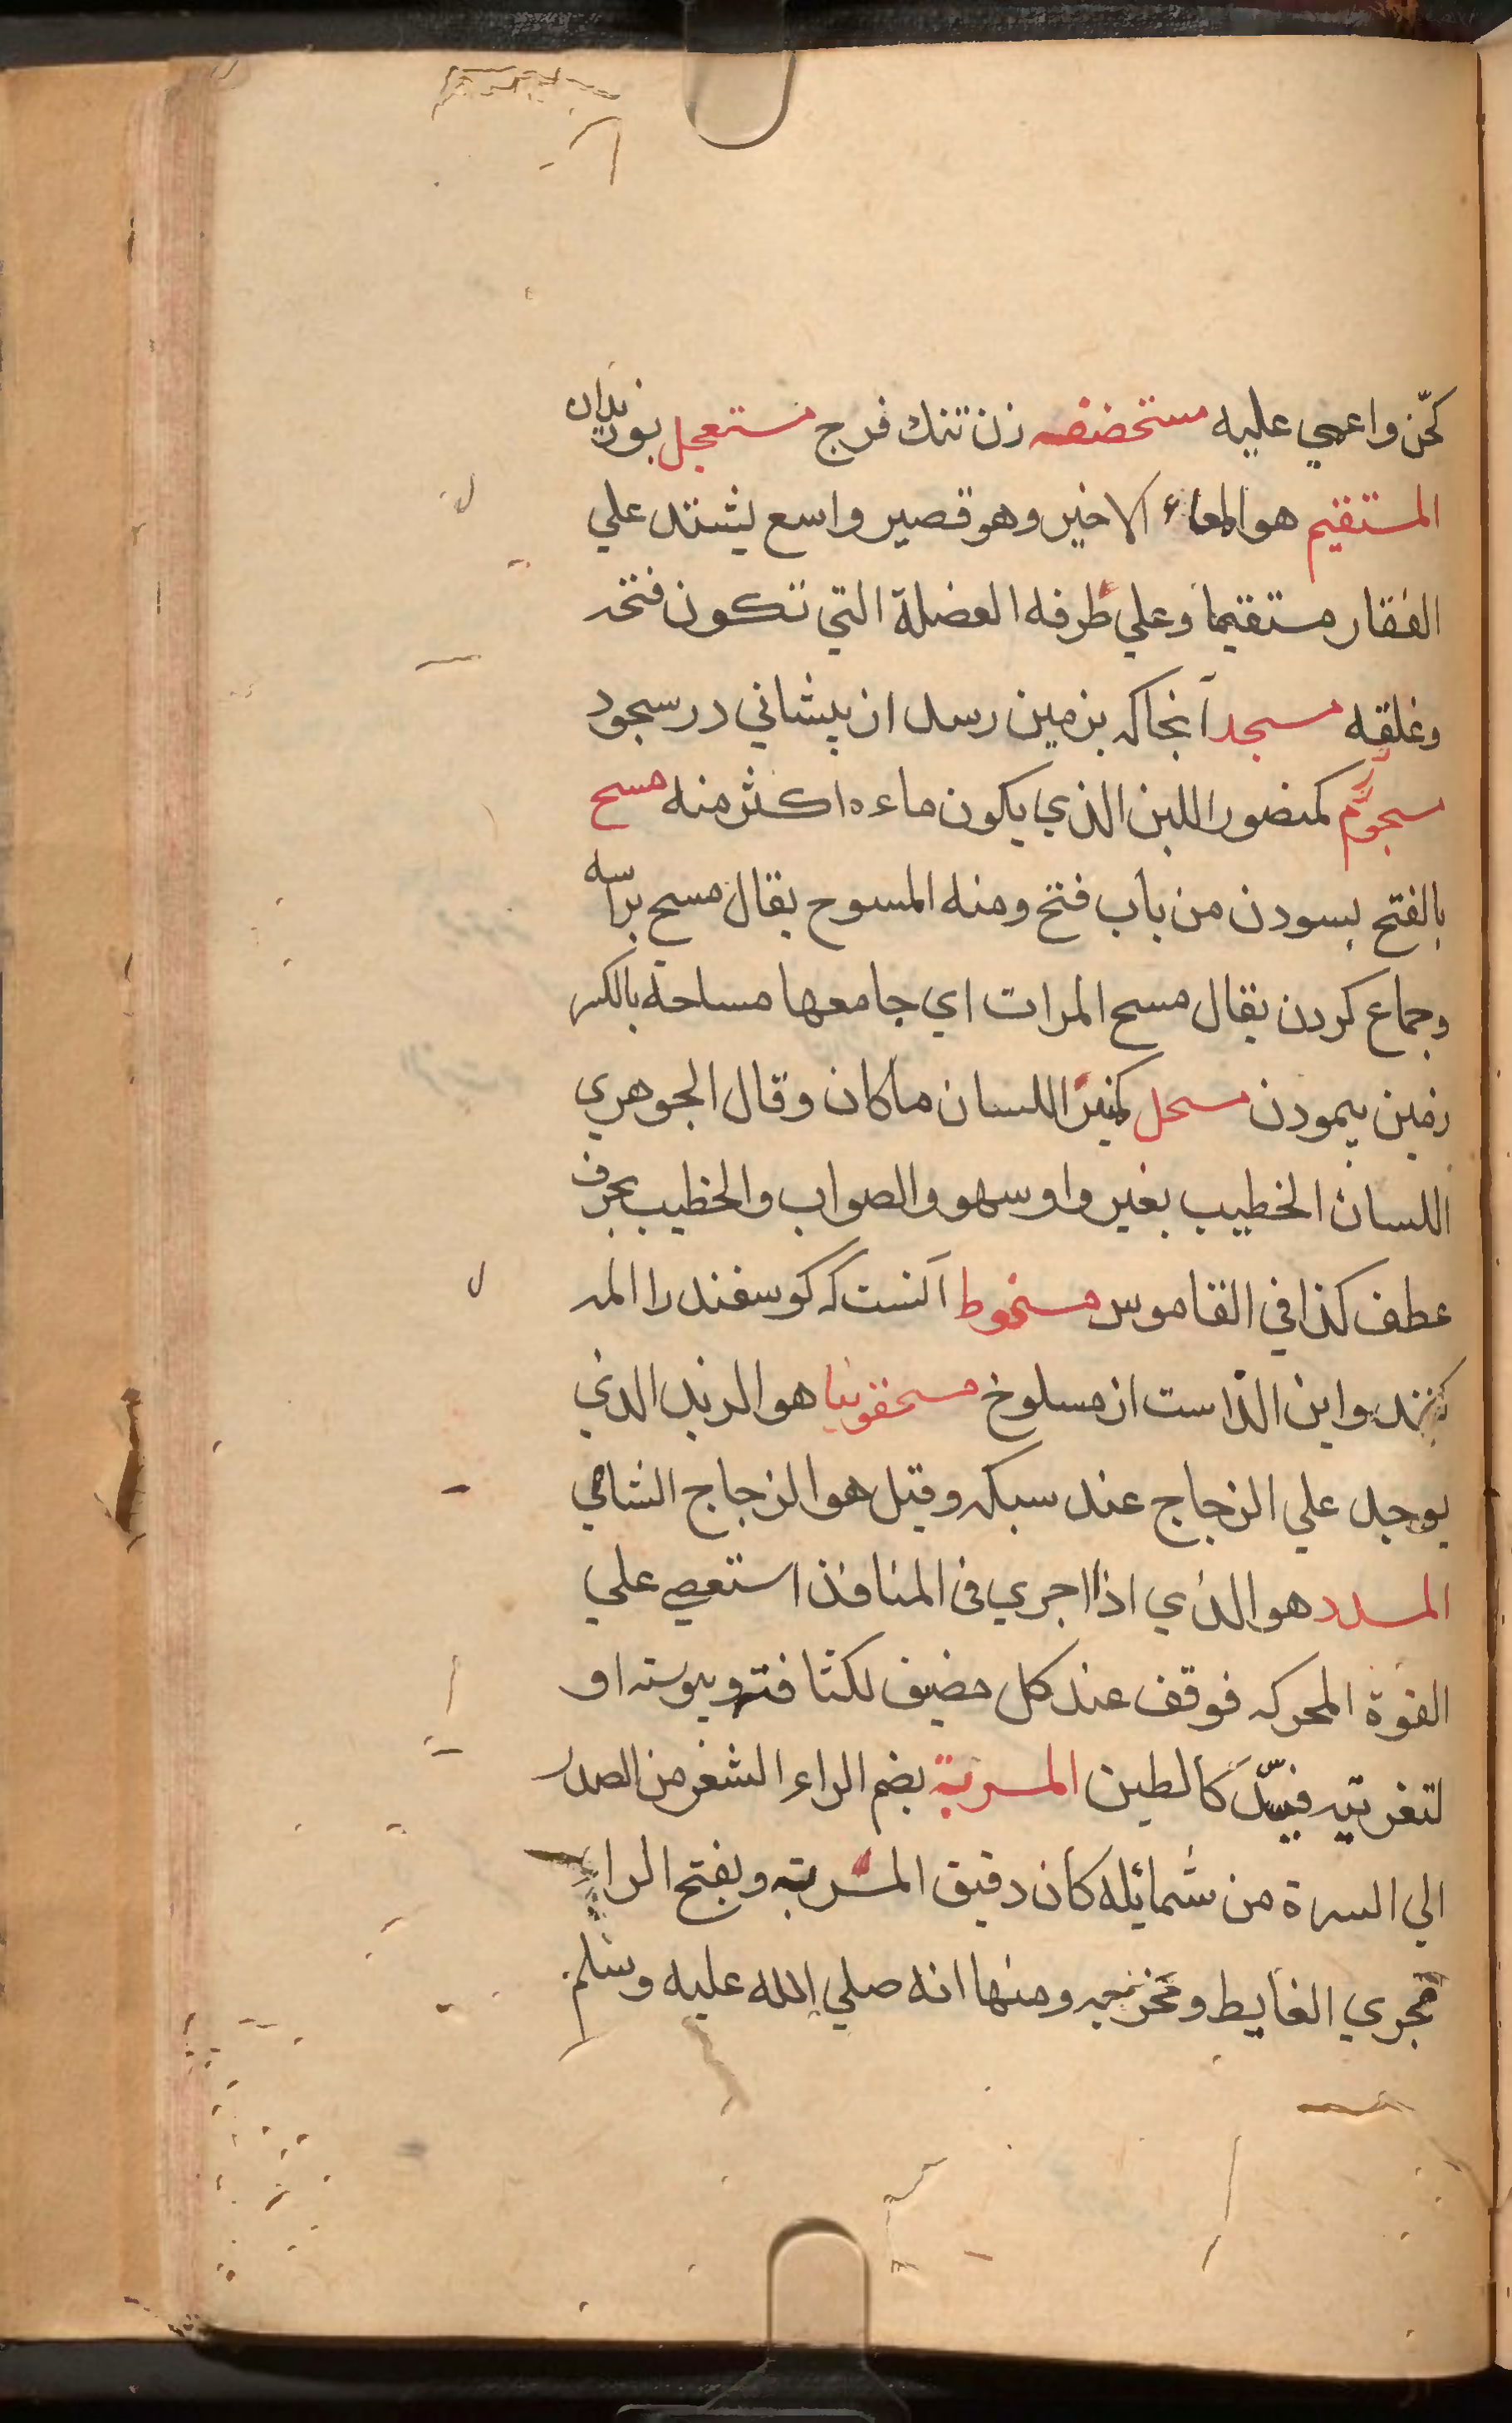 كحّن واعمي عليه مستحضفه زن تنك فرج مستعجل بوزيدان
المستقيم هو المعاء الاخير وهو قصير واسع يشتد علي
الفقار مستقيما وعلي طرفه العضلة التي تكون فتحه
وغلقه مسجد آنجا كه بزمين رسد از پيشاني در سجود
مسجوم كمنضور اللبن الذي يكون ماءه اكثر منه مسح
بالفتح بسودن من باب فتح ومنه المسوح يقال مسح براسه
وجماع كردن يقال مسح المرات اي جامعها مساحه بالكسر
زمين پيمودن مسحل كمنبر اللسان ما كان وقال الجوهري
اللسان الخطيب بغير واو سهو والصواب والخطيب بحرف
عطف كذا في القاموس مسخوط آنست كه كوسفند را المه
كنند واين الذ است از مسلوخ مسحقونيا هو الزبد الذي
يوجد علي الزجاج عند سبكه وقيل هو الزجاج الشامي
المسدد هو الذي اذا اجري في المنافذ استعصي علي
القوة المحركه فوقف عند كل مضيق لكثافته ويبوسته او
لتغريته فيسدّ كالطين المسربة بضم الراء الشعر من الصدر
الي السرة من شمائله كان دقيق المسربة وبفتح الراء
مجري الغايط ومخرجه ومنها انه صلي الله عليه وسلم